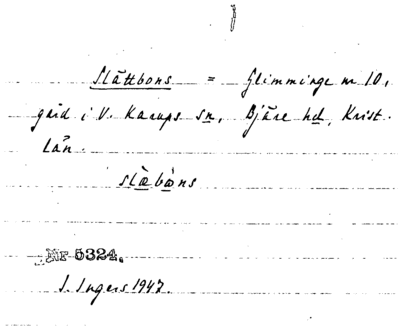 Slättbons = Glimminge nr 10,
gård i V. Karups sn, Bjäre hd, Krist.
län.
slæbons
Nr 5324.
I. Ingers 1947.